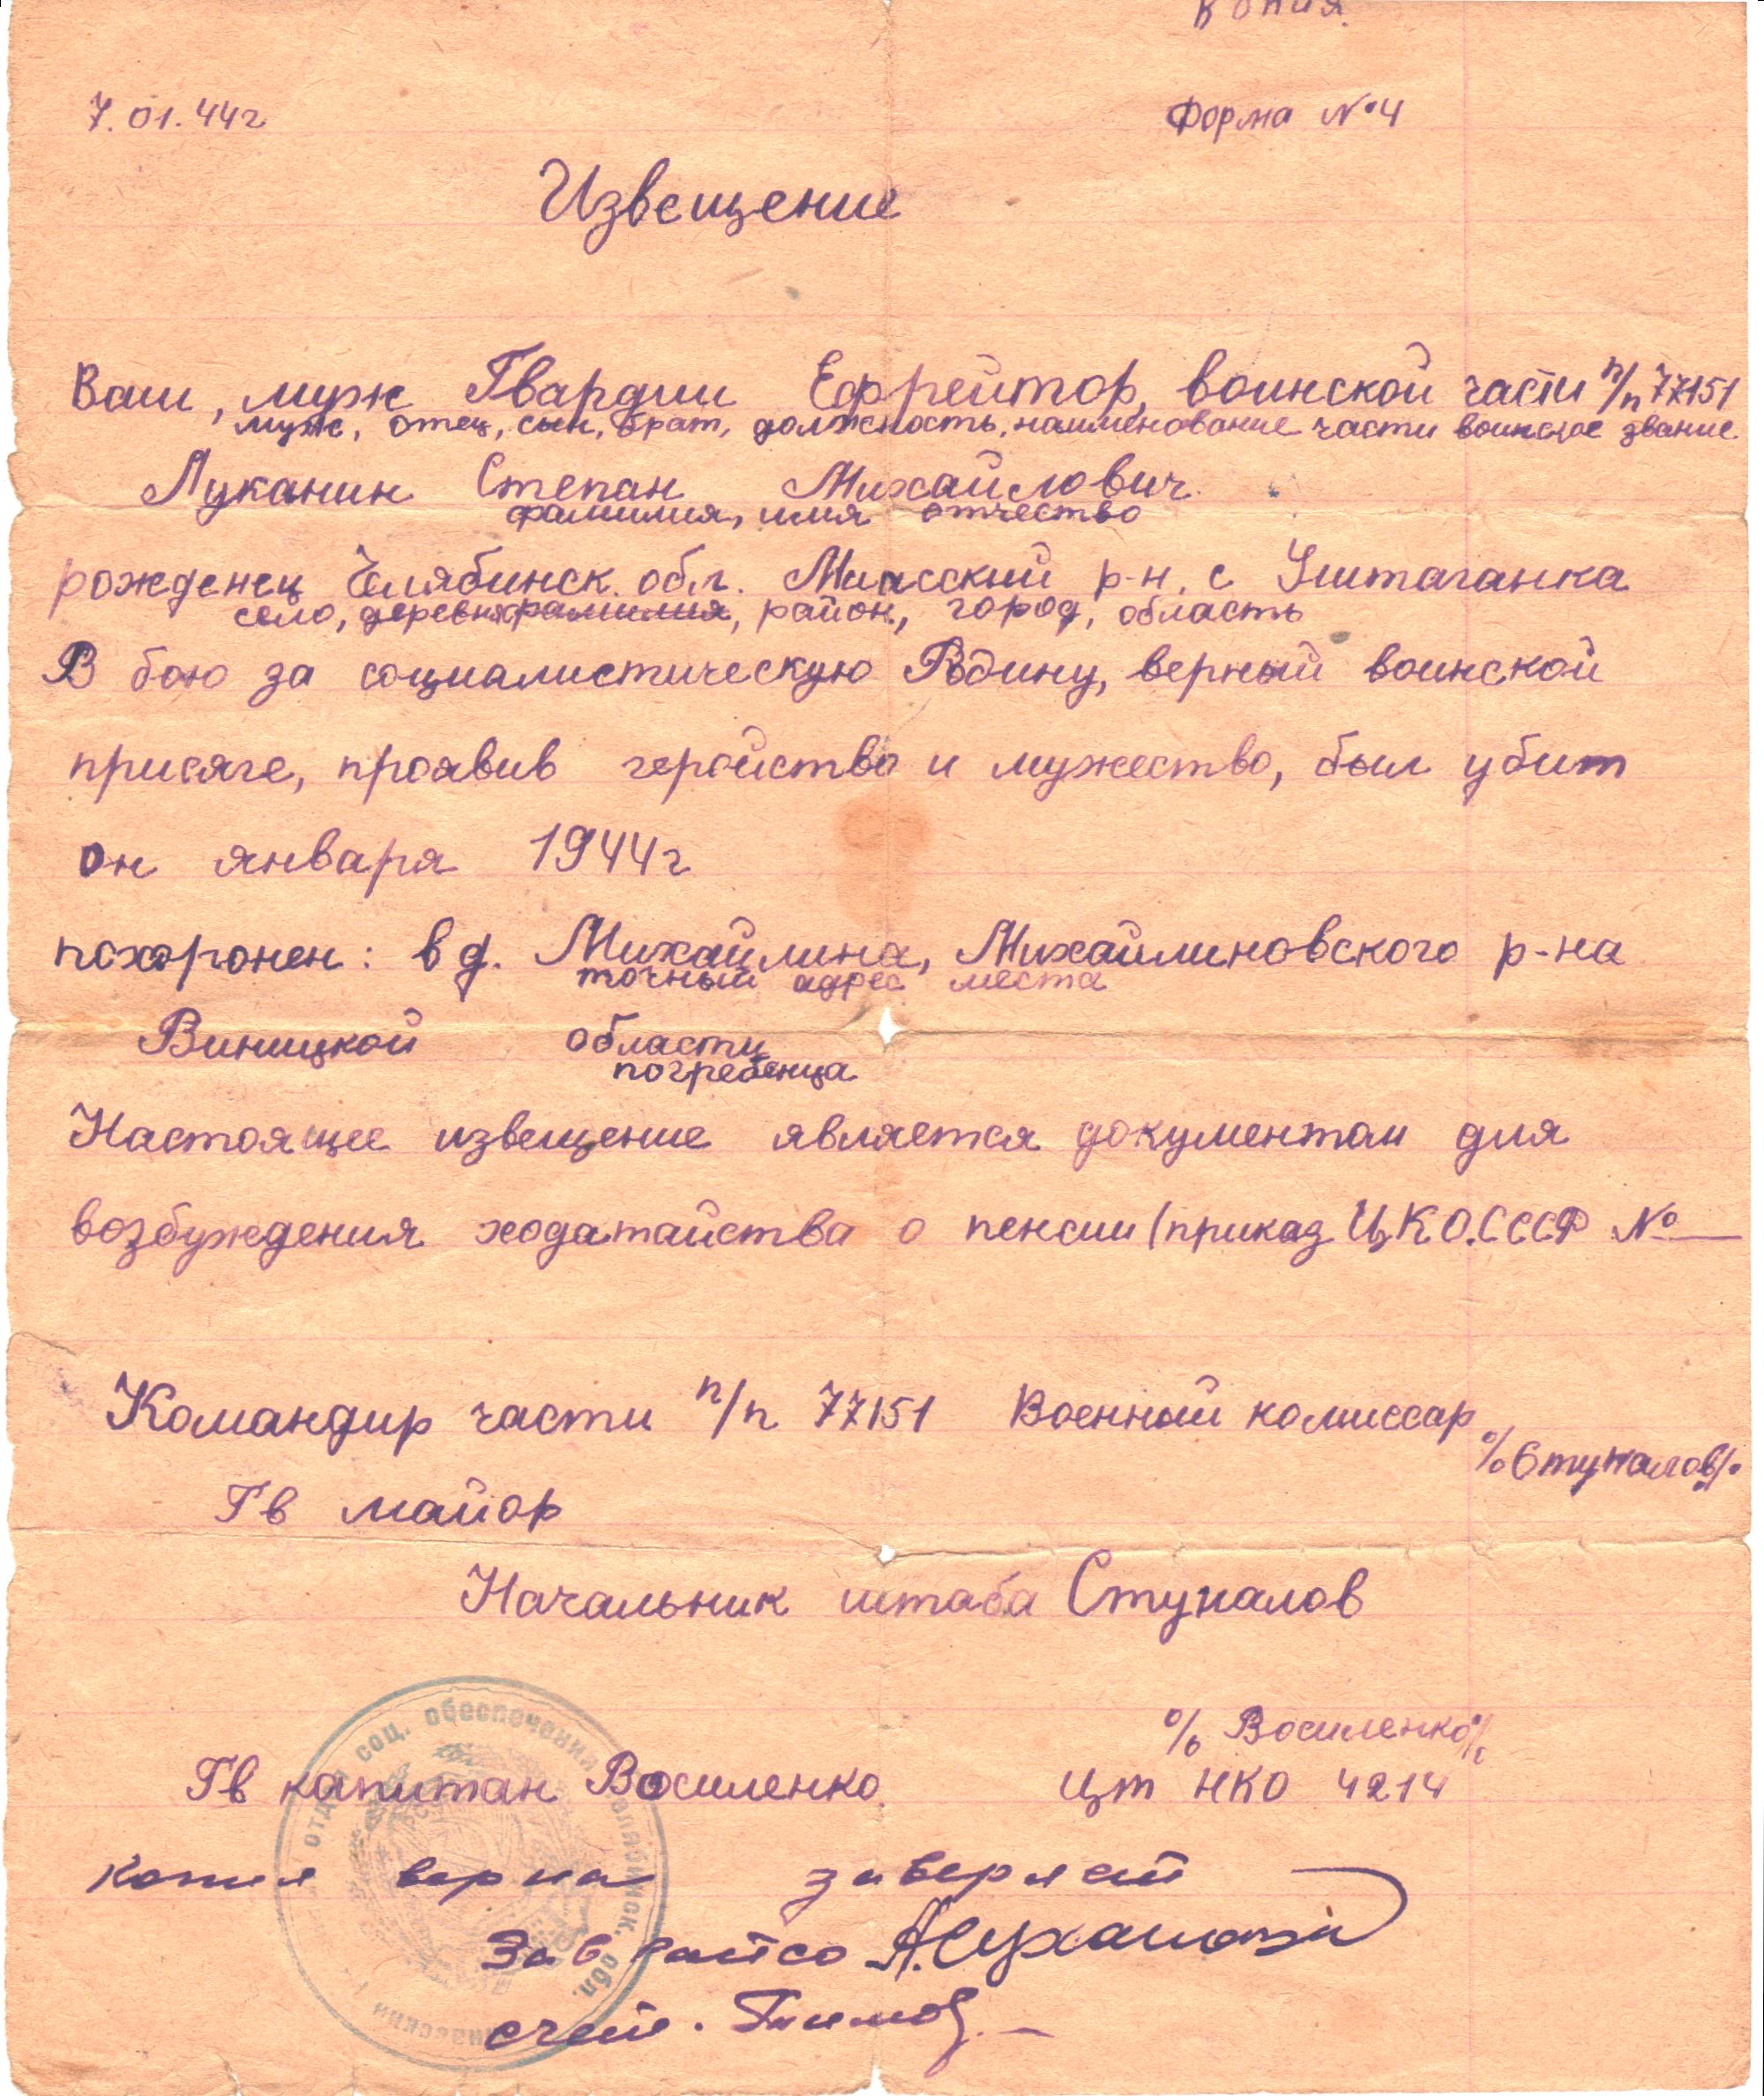 Копия.
7.01.44г
Форма №4
Извещение
Ваш, муж Гвардии Ефрейтор, воинской части п/п 77151
муж, отец, сын, брат, должность, наименование части воинское звание
Луканин Степан Михайлович
фамилия, имя отчество
рожденец Челябинск. обл. Миасский р-н. с Уштаганка
село, деревня фамилия, район, город, область
В бою за социалистическую Родину, верный воинской
присяге, проявив геройство и мужество, был убит
он января 1944г
похоронен: в д. Михайлина, Михайлиновского р-на
точный адрес места
Виницкой области
погребенца
Настоящее извещение является документом для
возбуждения ходатайства о пенсии (приказ ЦКО.СССР №
Командир части п/п 77151 Военный комиссар
%Ступалов%
Гв майор
Начальник штаба Ступалов
% Восиленко%
Гв капитан Восиленко
Цт НКО 4214
отдел соц. обеспечения Челябинск. обл. Миасский
копия верна заверяет
Зав райсо А.Суханова
счет.